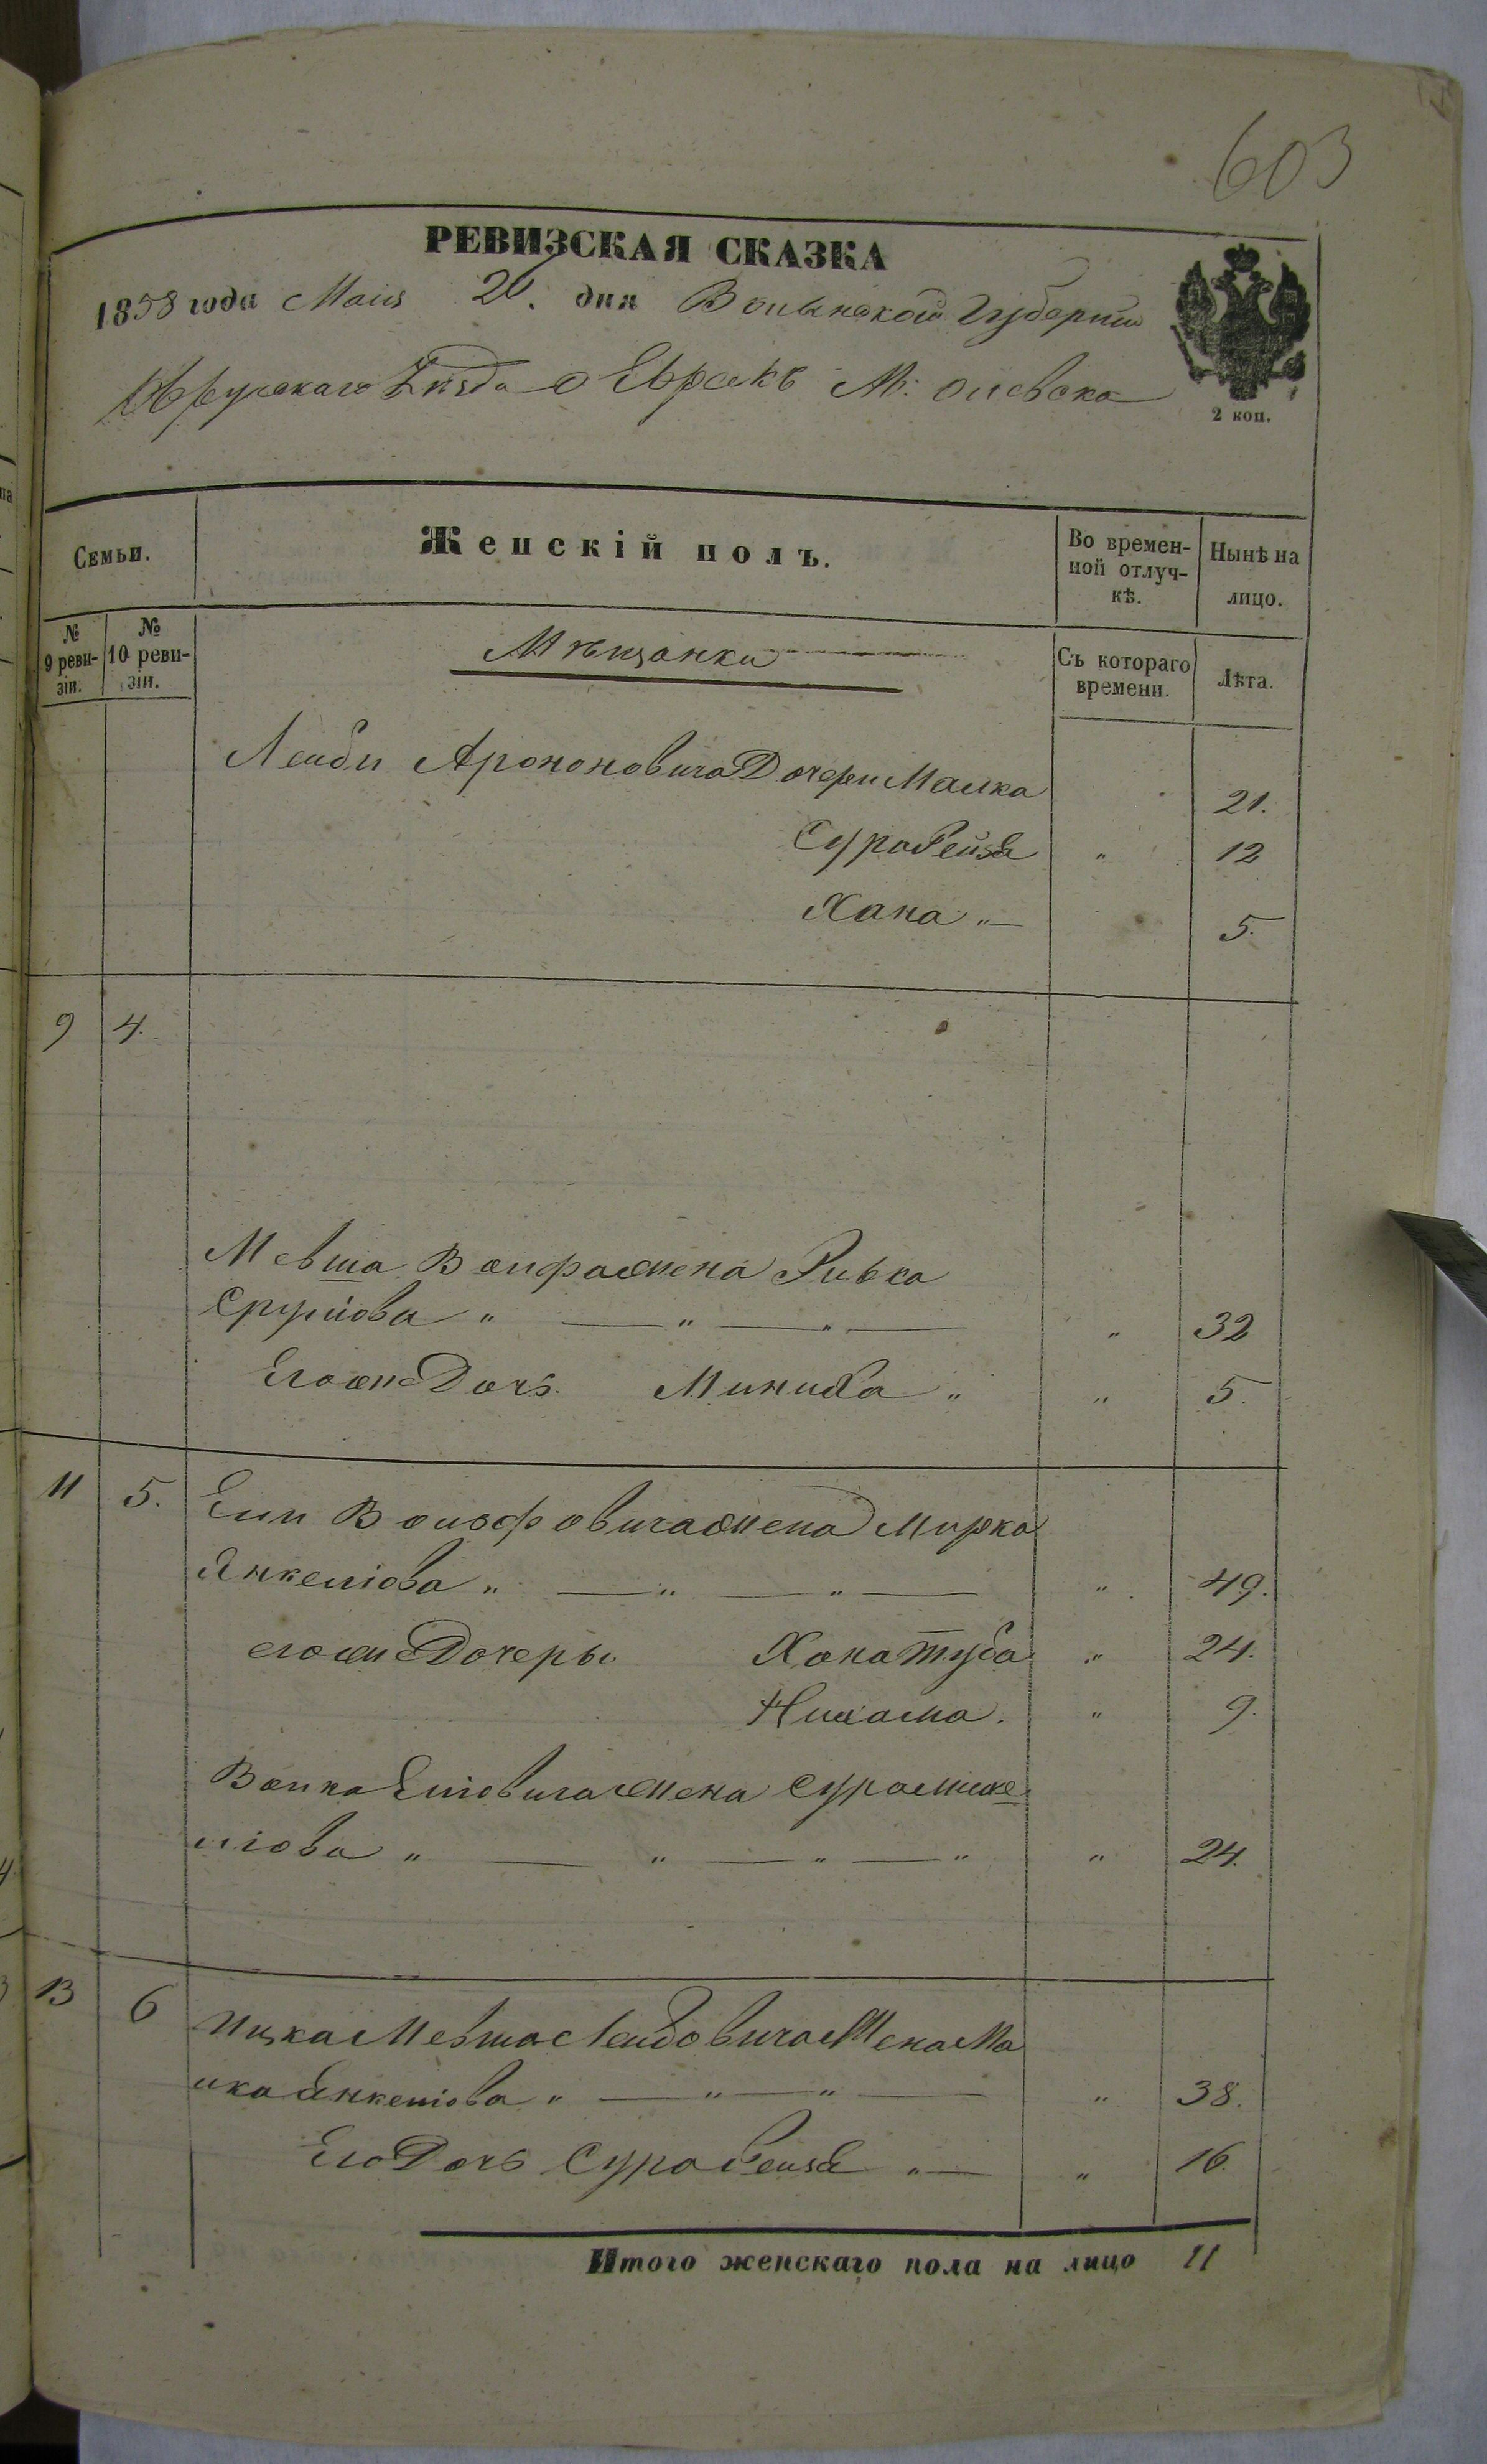 603
РЕВИЗСКАЯ СКАЗКА
1858 года Маія 20. дня Волынской Губерніи
Овручскаго Уѣзда о Евреяхъ М: Олевска
2 коп.
Семьи.
Женскій полъ.
Во времен-
ной отлуч-
кѣ.
Нынѣ на
лицо.
№
9 реви-
зіи.
№
10 реви-
зіи.
Мѣщанки
Съ котораго
времени.
Лѣта.
Лейби Ароновича Дочери Малка 21.
Сура Рейза " 12
Хана " 5.
9 4.
Мевша Волфа жена Ривка
Сруліова " " " " 32
Его же Дочь Миниха " " 5.
11 5. Ели Вольфовича жена Мирка
Янкеліова " " " " 49.
его же Дочеры Хана Туба " 24.
Нихама. " 9.
Волка Еліовича жена Сура Михе
ліова " " " " " 24.
13 6 Ицка Мевша Лейбовича Жена Ма
лка Янкеліова " " " " 38.
Его Дочь Сура Рейза " " 16.
Итого женскаго пола на лицо 11